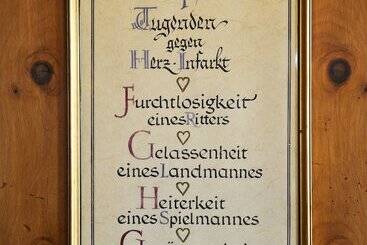 Tugenden
gegen
Herz-Infarkt
Furchtlosigkeit
eines Ritters
Gelassenheit
eines Landmannes
Heiterkeit
eines Spielmannes